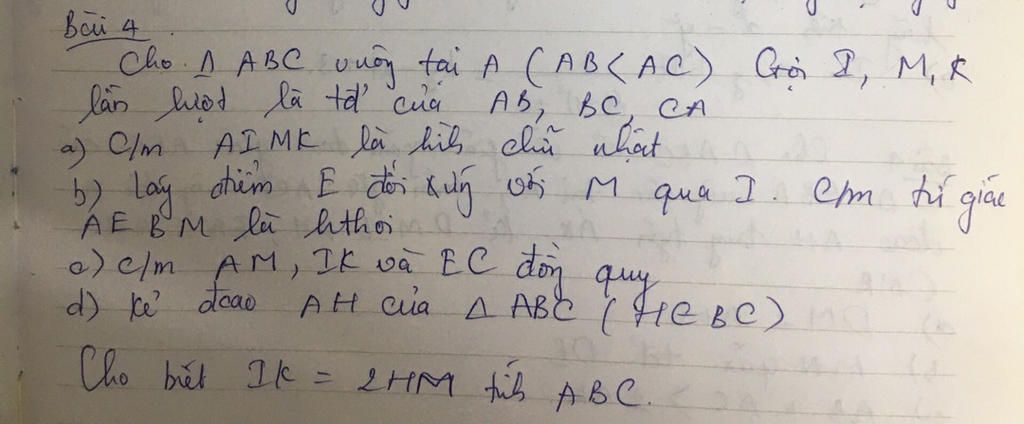 Bài 4
Cho Δ ABC vuông tại A (AB < AC) Gọi I, M, K
lần lượt là tđ' của AB, BC, CA
a) C/m AIMK là hìh chữ nhật
b) Lấy điểm E đối xứg với M qua I. C/m tứ giác
AEBM là hthoi
c) C/m AM, IK và EC đồg quy
d) Kẻ đcao AH của Δ ABC (H ∈ BC)
Cho biết IK = 2HM tíh ABC.